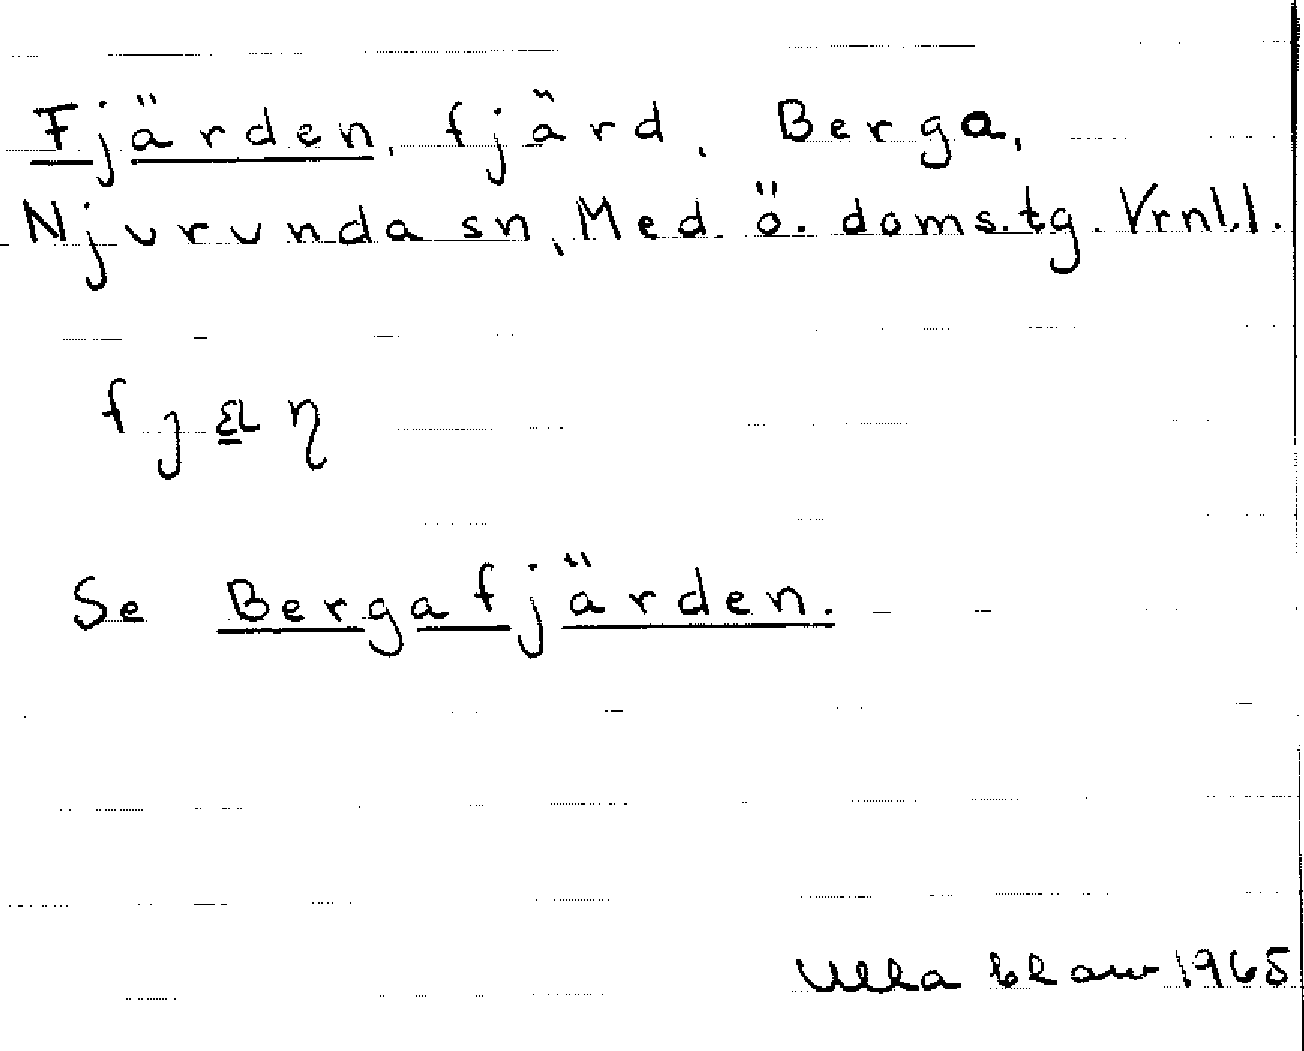 Fjärden, fjärd, Berga,
Njurunda sn, Med. ö. doms.tg. Vrnl.l.
Se Bergafjärden.
Ulla 1965